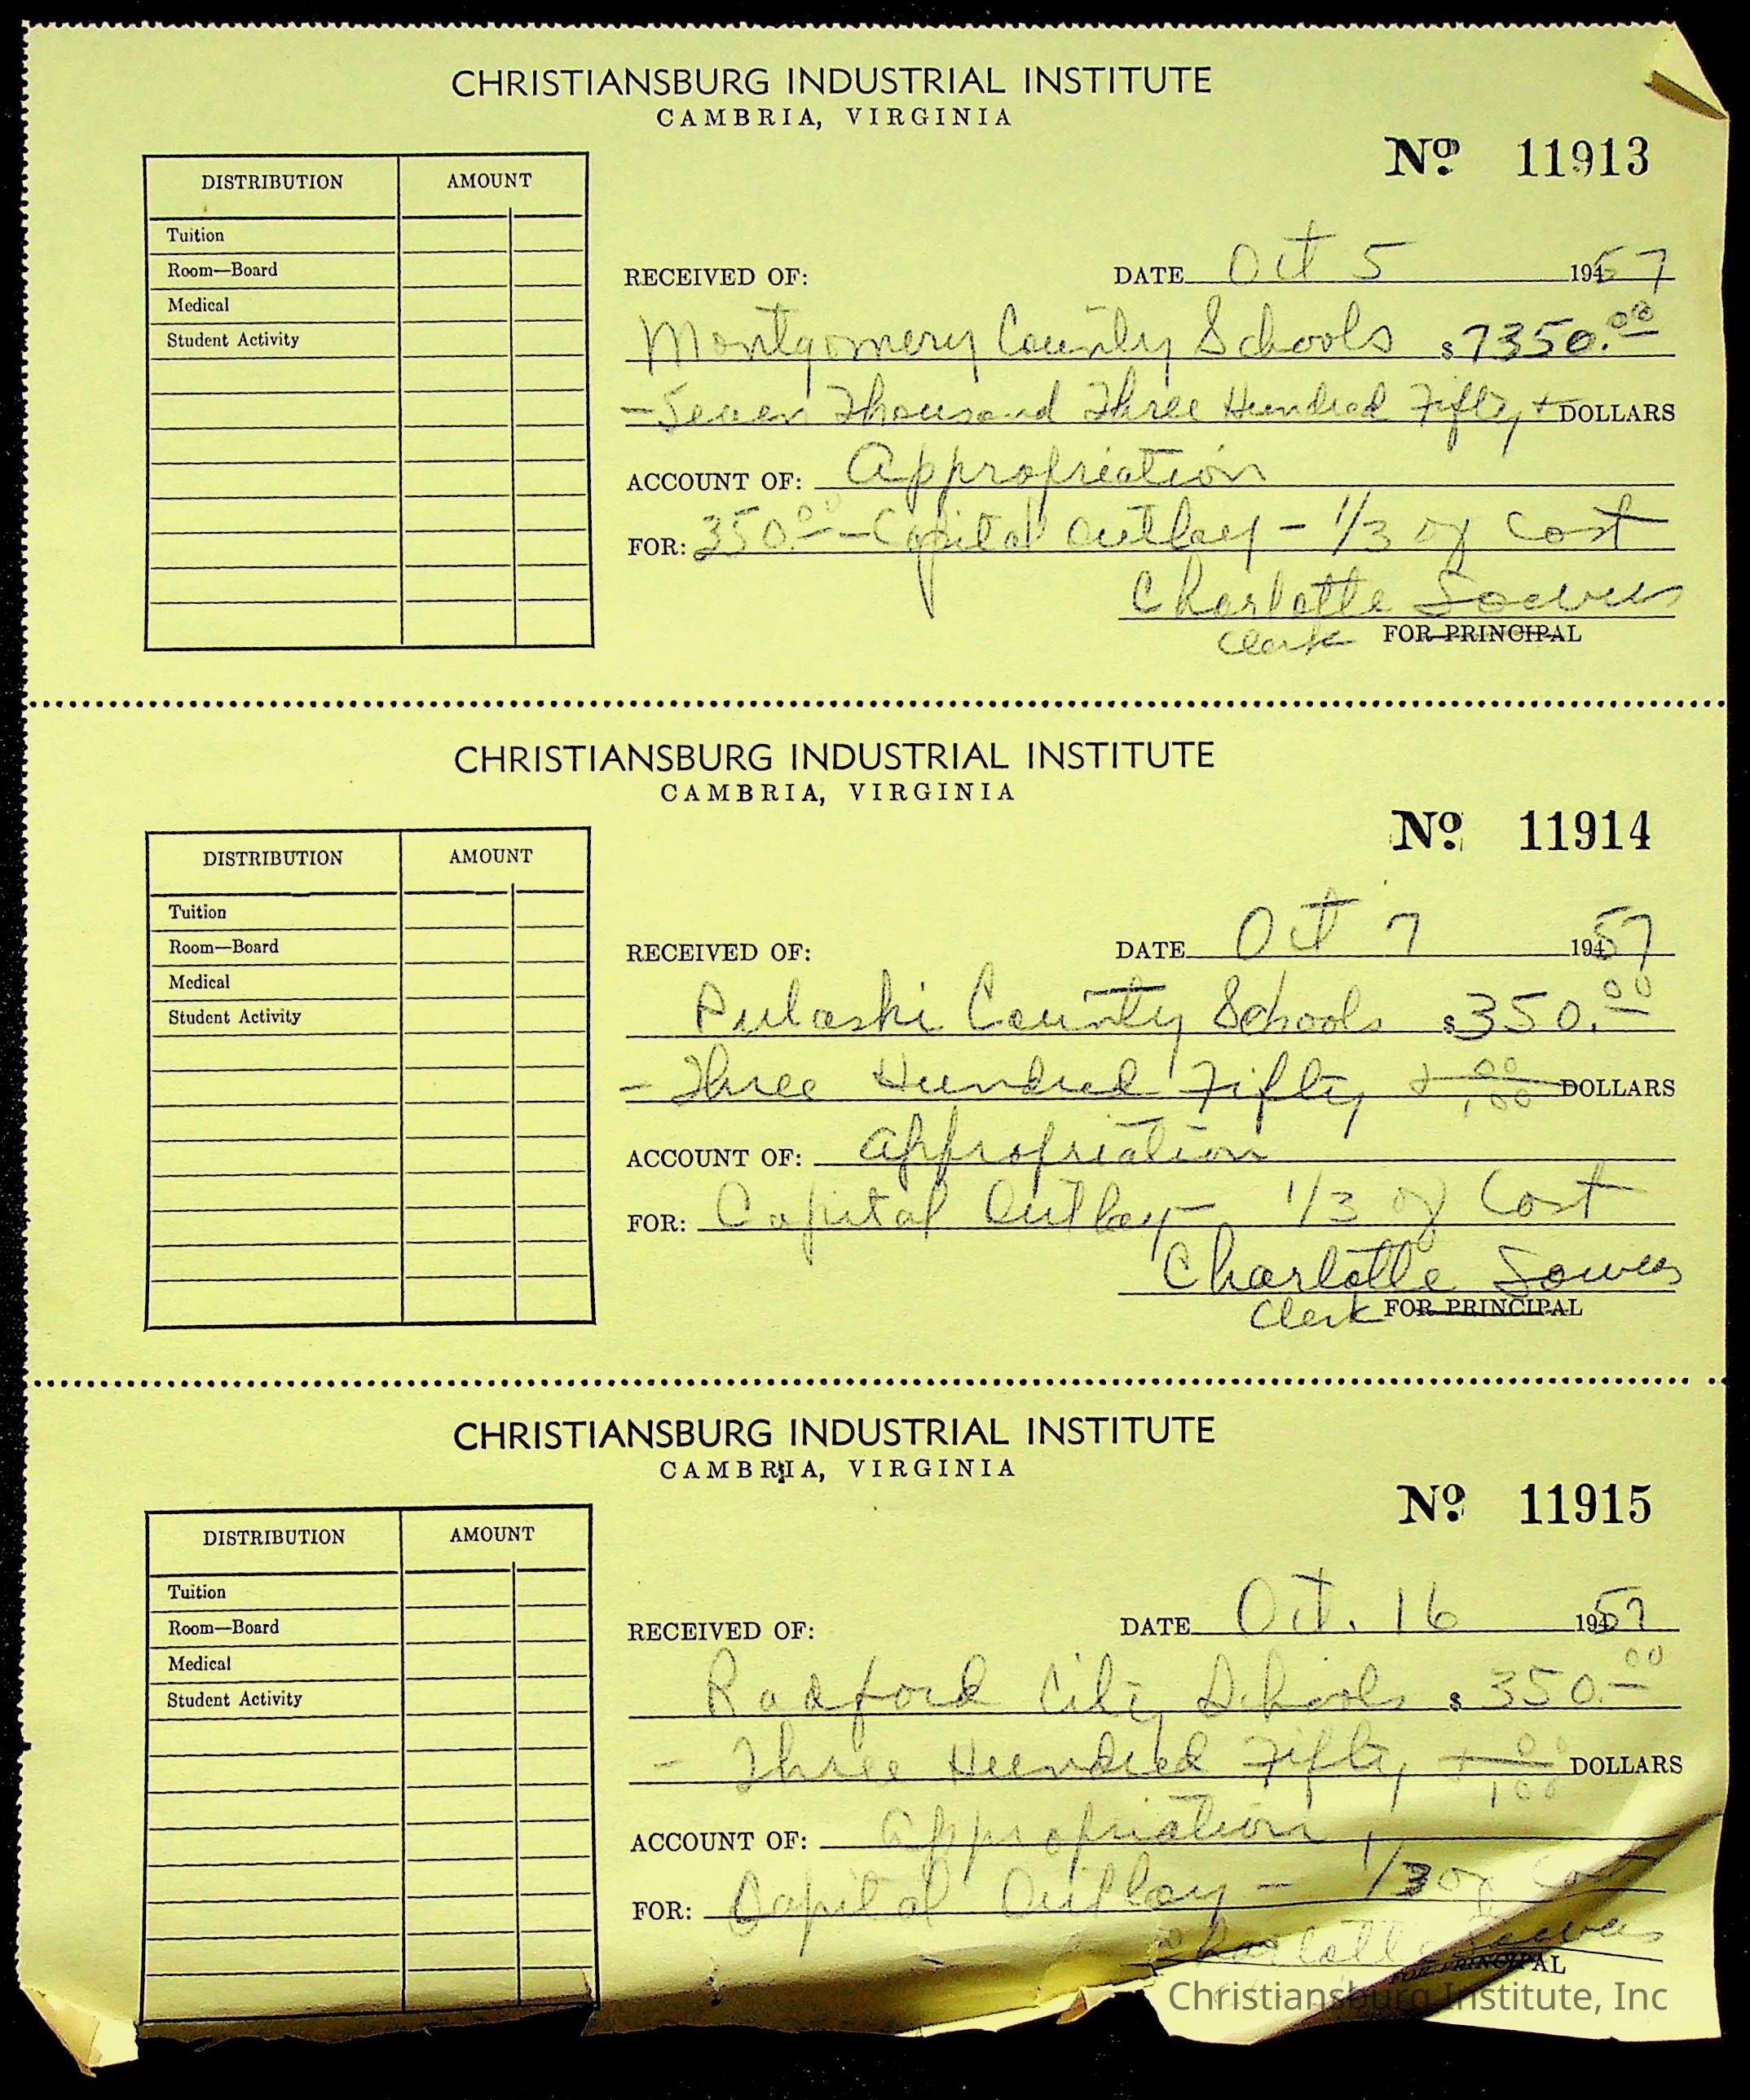 CHRISTIANSBURG INDUSTRIAL INSTITUTE
CAMBRIA, VIRGINIA
Nº 11913
DISTRIBUTION AMOUNT
Tuition
Room—Board
Medical
Student Activity
RECEIVED OF: DATE Oct 5 19457
Montgomery County Schools $7350.00
- Seven Thousand Three Hundred Fifty + DOLLARS
ACCOUNT OF: Appropriation
FOR: 350.00 - Capital Outlay - 1/3 of Cost
Charlotte Sowers
Clerk FOR PRINCIPAL
CHRISTIANSBURG INDUSTRIAL INSTITUTE
CAMBRIA, VIRGINIA
Nº 11914
DISTRIBUTION AMOUNT
Tuition
Room—Board
Medical
Student Activity
RECEIVED OF: DATE Oct 7 19457
Pulaski County Schools $350.00
- Three Hundred Fifty + 00/100 DOLLARS
ACCOUNT OF: Appropriation
FOR: Capital Outlay - 1/3 of Cost
Charlotte Sowers
Clerk FOR PRINCIPAL
CHRISTIANSBURG INDUSTRIAL INSTITUTE
CAMBRIA, VIRGINIA
Nº 11915
DISTRIBUTION AMOUNT
Tuition
Room—Board
Medical
Student Activity
RECEIVED OF: DATE Oct. 16 19457
Radford City Schools $350.00
- Three Hundred Fifty + 00/100 DOLLARS
ACCOUNT OF: Appropriation
FOR: Capital Outlay - 1/3 of Cost
Charlotte Sowers
FOR PRINCIPAL
Christiansburg Institute, Inc